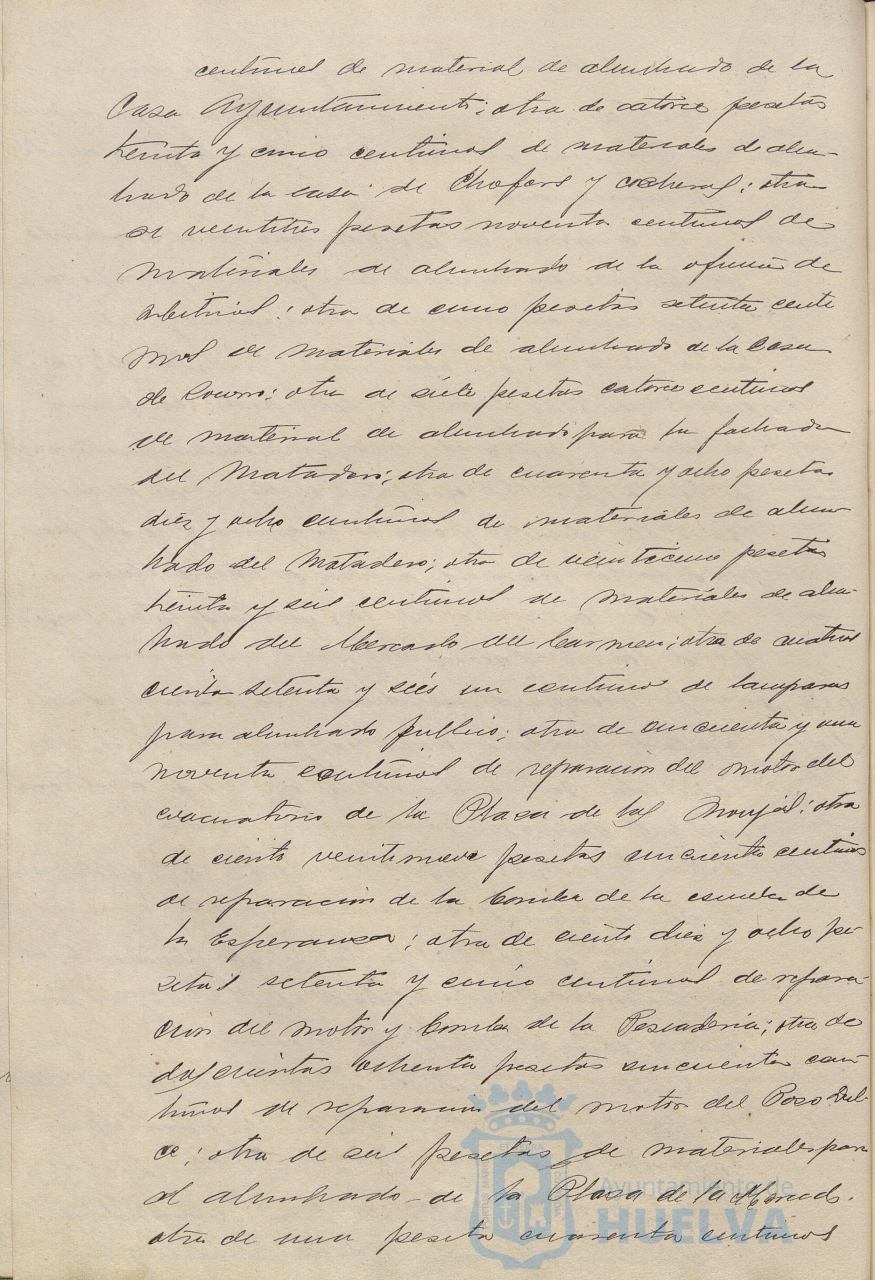 centimos de material de alumbrado de la
Casa Ayuntamiento; otra de catorce pesetas
treinta y cinco centimos de materiales de alum-
brado de la casa de Chofers y cocheras; otra
de veintitres pesetas noventa centimos de
materiales de alumbrado de la oficina de
arbitrios; otra de cinco pesetas setenta centi
mos de materiales de alumbrado de la Casa
de Socorro; otra de siete pesetas catorce centimos
de material de alumbrado para la fachada
del Matadero; otra de cuarenta y ocho pesetas
diez y ocho centimos de materiales de alum-
brado del Matadero; otra de veinticinco pesetas
treinta y seis centimos de materiales de alum-
brado del Mercado del Carmen; otra de cuatro
cientas setenta y seis un centimo de lamparas
para alumbrado publico; otra de cincuenta y una
noventa centimos de reparacion del motor del
evacuatorio de la Plaza de las Monjas; otra
de ciento veintinueve pesetas cincuenta centimos
de reparacion de la bomba de la escuela de
la Esperanza; otra de ciento diez y ocho pe-
setas setenta y cinco centimos de repara-
cion del motor y bomba de la Pescaderia; otra de
doscientas ochenta pesetas cincuenta cen
timos de reparacion del motor del Pozo Dul-
ce; otra de seis pesetas de materiales para
el alumbrado de la Plaza de la Merced.
otra de una peseta cuarenta centimos
Ayuntamiento de
HUELVA